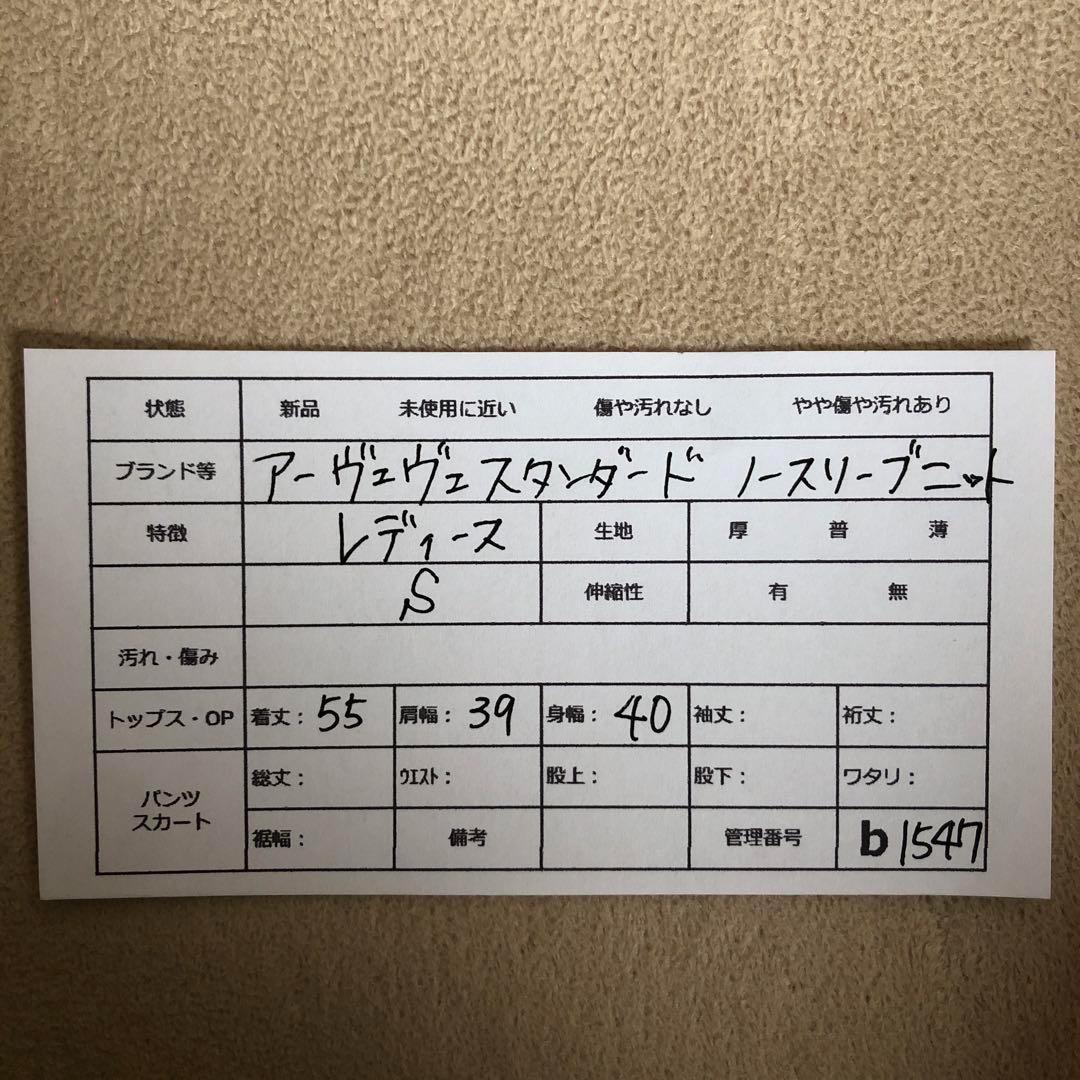 状態 新品 未使用に近い 傷や汚れなし やや傷や汚れあり
ブランド等 アーヴェヴェスタンダード ノースリーブニット
特徴 レディース 生地 厚 普 薄
S 伸縮性 有 無
汚れ・傷み
トップス・OP 着丈：55 肩幅：39 身幅：40 袖丈： 裄丈：
パンツ スカート 総丈： ウエスト： 股上： 股下： ワタリ：
裾幅： 備考 管理番号 b1547